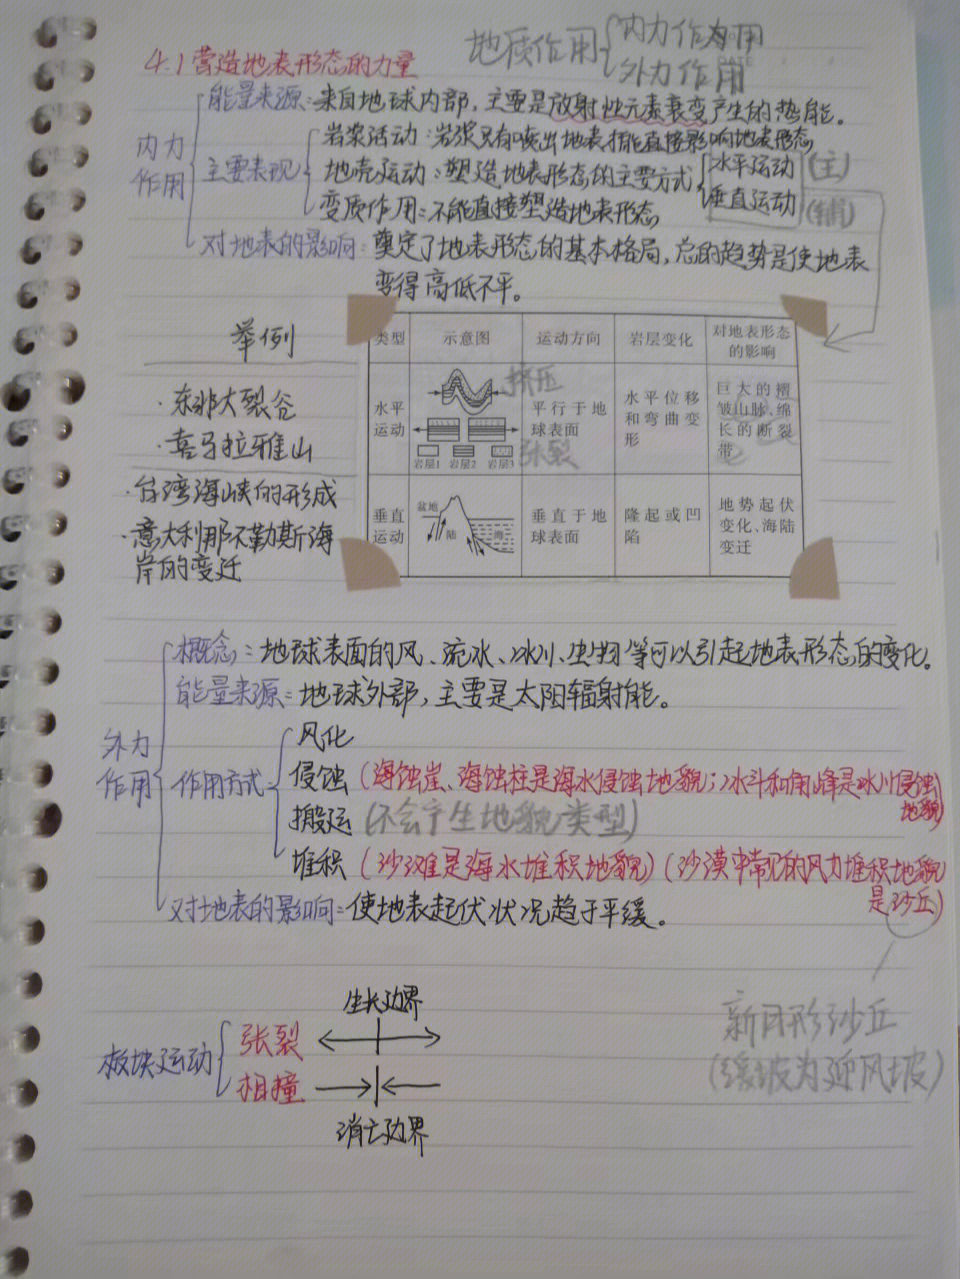 地质作用 内力作用
外力作用
4.1 营造地表形态的力量
内力作用
能量来源：来自地球内部，主要是放射性元素衰变产生的热能。
主要表现
岩浆活动：岩浆只有喷出地表才能直接影响地表形态
地壳运动：塑造地表形态的主要方式 水平运动（主）
垂直运动（辅）
变质作用：不能直接塑造地表形态
对地表的影响：奠定了地表形态的基本格局，总的趋势是使地表
变得高低不平。
举例
·东非大裂谷
·喜马拉雅山
·台湾海峡的形成
·意大利那不勒斯海
岸的变迁
类型 示意图 运动方向 岩层变化 对地表形态的影响
水平运动 挤压 张裂 岩层1 岩层2 岩层3 平行于地球表面 水平位移和弯曲变形 巨大的褶皱山脉、绵长的断裂带
垂直运动 盆地 陆 海 垂直于地球表面 隆起或凹陷 地势起伏变化、海陆变迁
外力作用
概念：地球表面的风、流水、冰川、生物等可以引起地表形态的变化。
能量来源：地球外部，主要是太阳辐射能。
作用方式
风化
侵蚀（海蚀崖、海蚀柱是海水侵蚀地貌；冰斗和角峰是冰川侵蚀
地貌）
搬运（不会产生地貌类型）
堆积（沙滩是海水堆积地貌）（沙漠中常见的风力堆积地貌
是沙丘）
对地表的影响：使地表起伏状况趋于平缓。
新月形沙丘
（缓坡为迎风坡）
板块运动
生长边界
张裂
相撞
消亡边界